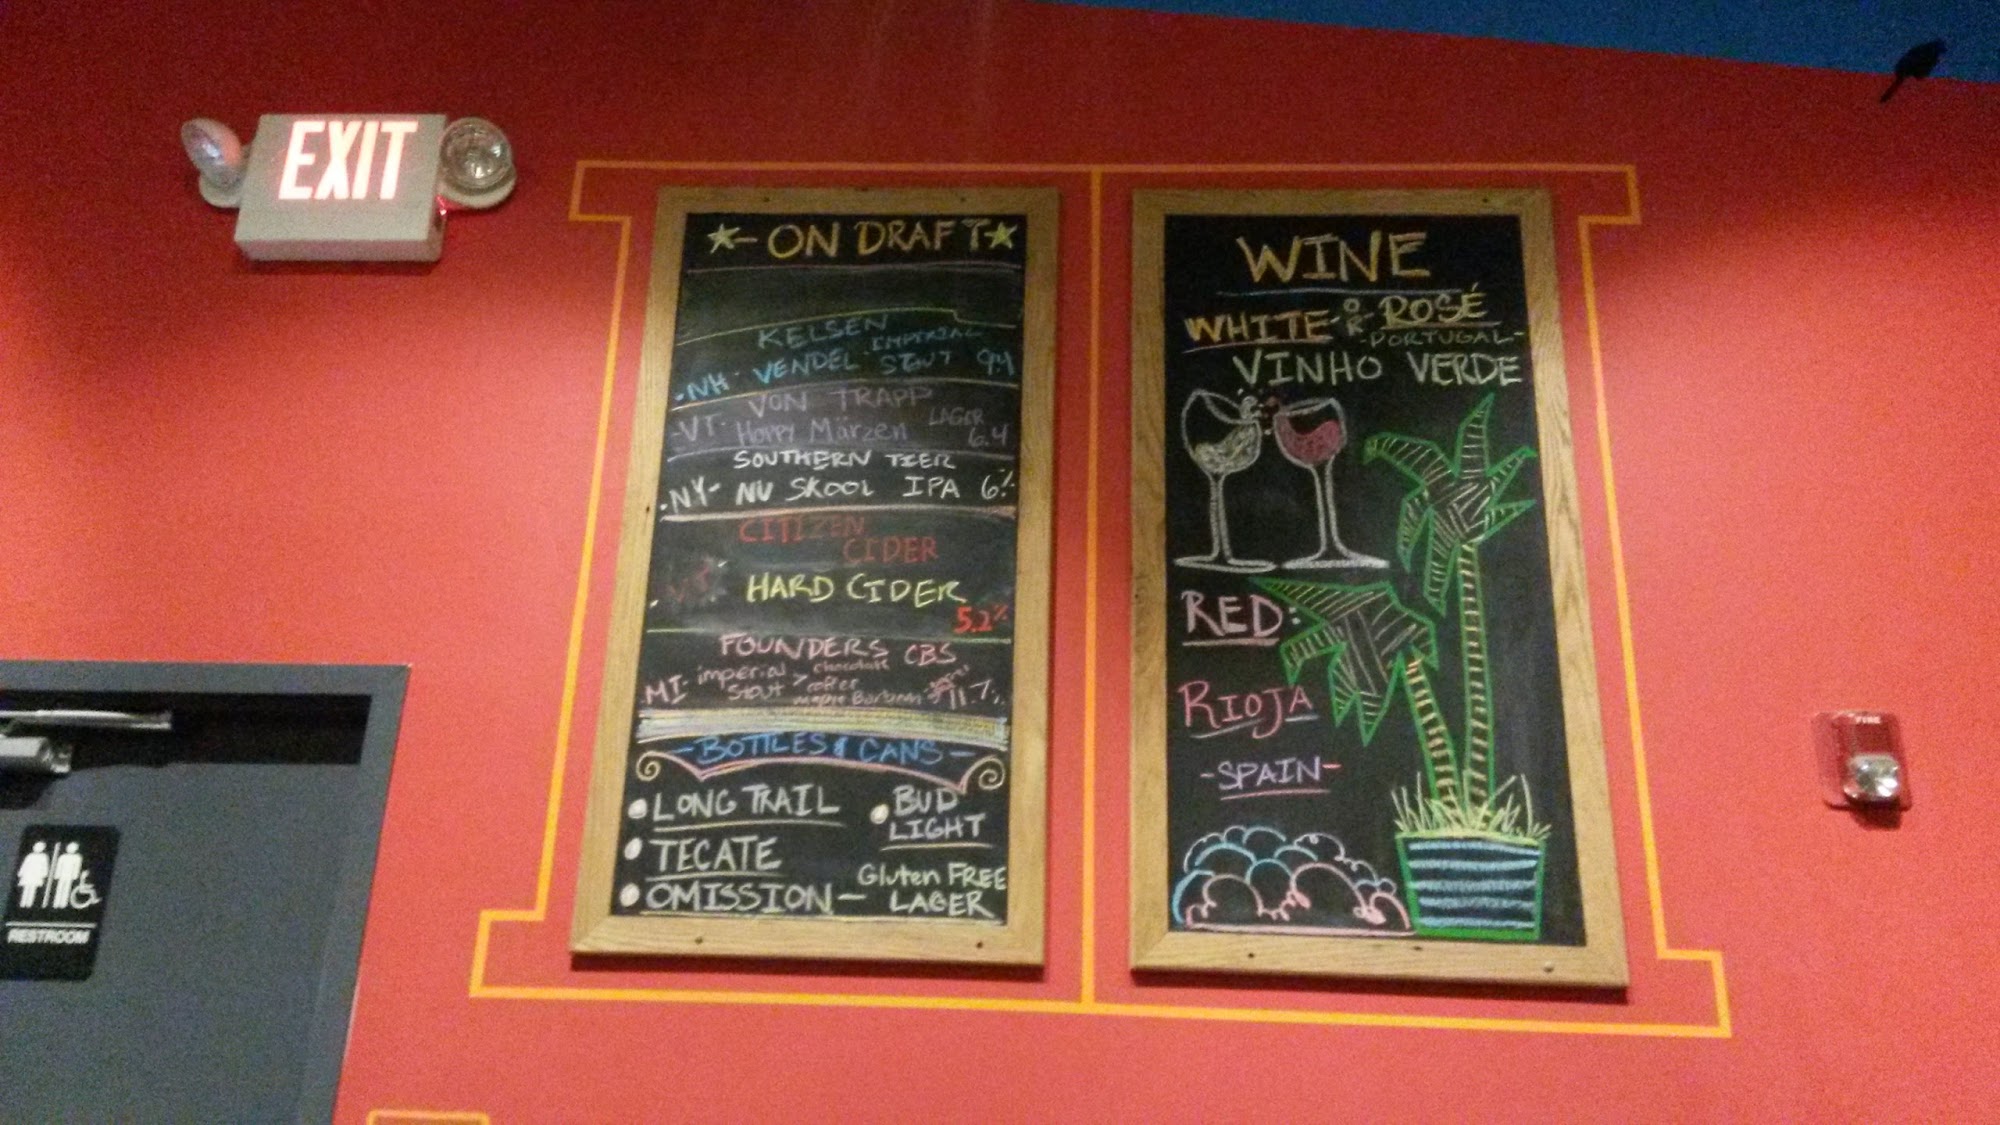 EXIT
ON DRAFT
KELSEN
IMPERIAL
NH VENDEL STOUT 9.4
VON TRAPP
VT Hoppy Märzen LAGER 6.4
SOUTHERN TIER
NY NU SKOOL IPA 6%
CITIZEN
CIDER
HARD CIDER
5.2%
FOUNDERS CBS
MI imperial Stout chocolate coffee maple Bourbon
BOTTLES & CANS
LONG TRAIL
BUD LIGHT
TECATE
OMISSION — Gluten FREE LAGER
WINE
WHITE OR ROSÉ
-PORTUGAL-
VINHO VERDE
RED:
RIOJA
-SPAIN-
FIRE
RESTROOM